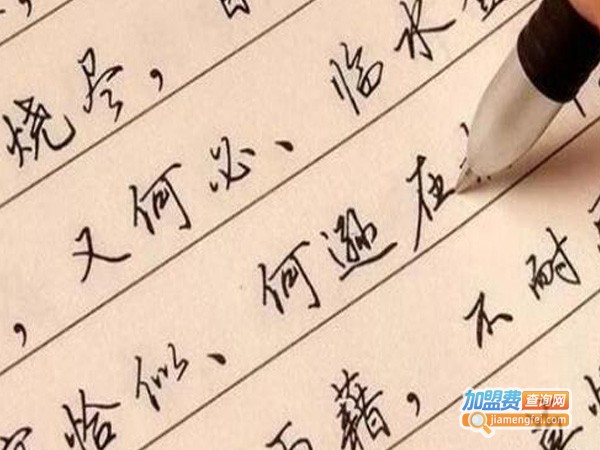 烧尽,
,又何必、临水
恰似、何逊在
雨藉,不耐
加盟费查询网
jiamengfei.com